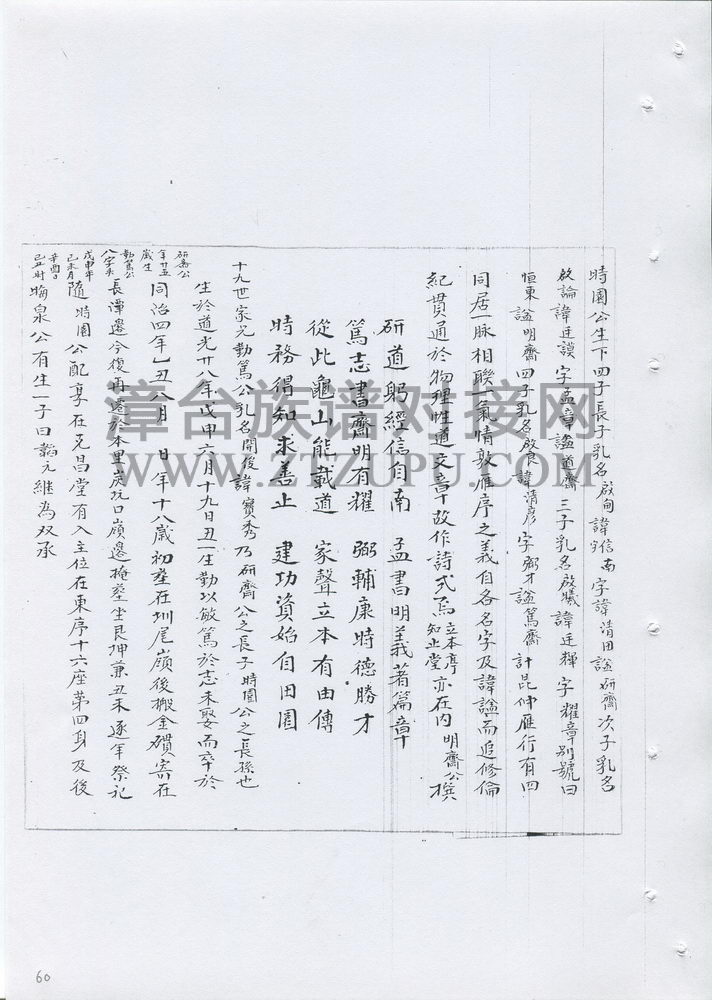 時園公生下四子長子乳名啟甸諱信南字諱清田諡研齋次子乳名
啟論諱廷謨字孟章諡道齋三子乳名啟曦諱廷輝字耀章別號曰
恒東諡明齋四子乳名啟良諱清彥字弼才諡篤齋計昆仲雁行有四
同居一脉相聯一氣情敦雁序之義自各名字及諱諡而追修倫
紀貫通於物理性道文章故作詩式焉立本亭知止堂亦在內明齋公撰
研道躬經信自南 孟書明義著篇章
篤志書齋明有耀 弼輔康時德勝才
從此龜山能載道 家聲立本有由傳
時務得知求善止 建功資始自田園
十九世家兄勤篤公乳名開後諱寶秀乃研齋公之長子時園公之長孫也
生於道光廿八年戊申六月十九日丑一生勤以敏篤於志未娶而卒於
研齋公年廿五歲生
同治四年乙丑八月 日年十八歲初塟在圳尾嶺後搬金礸寄在
勤篤公八字夫
長潭邊今復再遷於本里灰坑口嶺邊掩塟坐艮坤兼丑未逐年祭祀
戊申年己未月辛酉日己丑时
隨時園公配享在克昌堂有入主位在東序十六座第四身及後
晦泉公有生一子曰韜元継為双承
漳台族谱对接网
WWW.ZTZUPU.COM
60